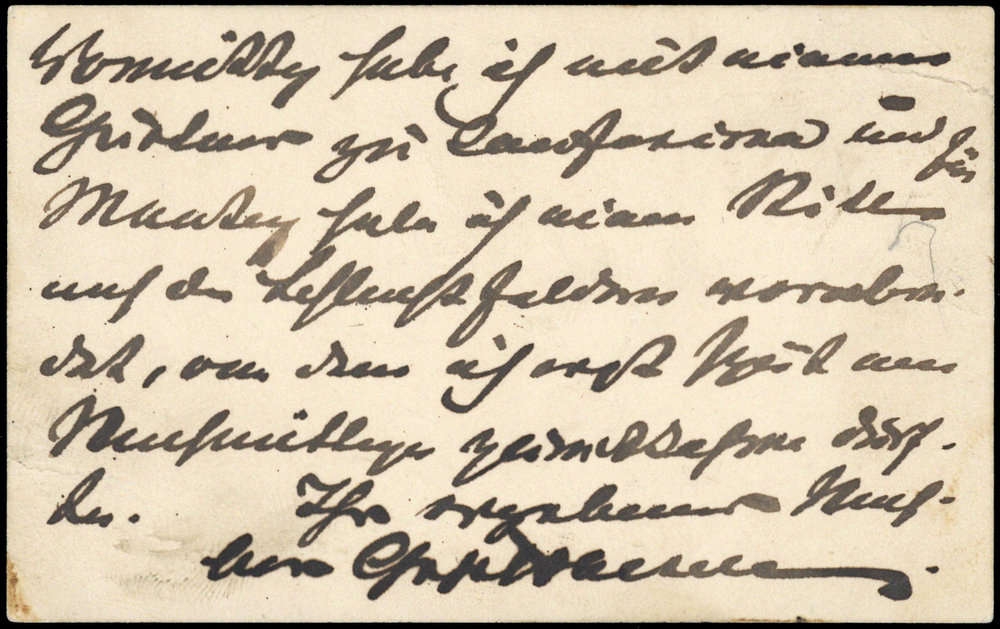 Vormittag habe ich mit meinem
Gärtner zu konferieren und für
Montag habe ich einen Ritt
auf den Schlachtfeldern verabre-
det, von dem ich erst spät am
Nachmittage zurückkehren dürf-
te. Ihr ergebener Nach-
bar